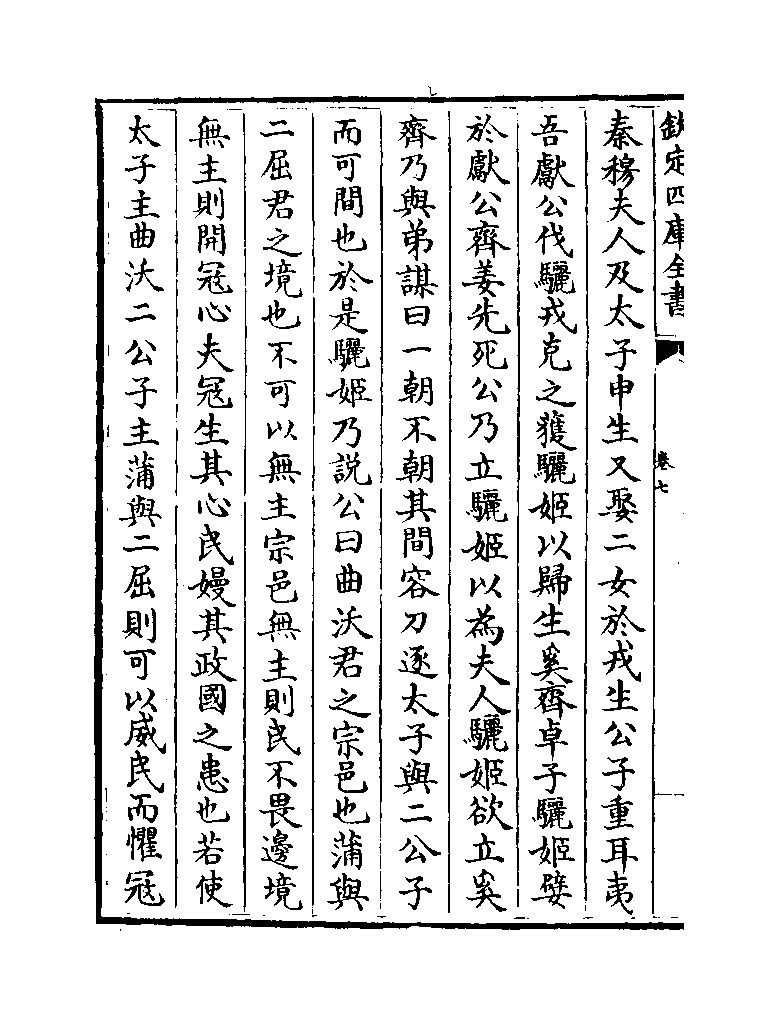 欽定四庫全書
卷七
秦穆夫人及太子申生又娶二女於戎生公子重耳夷
吾獻公伐驪戎克之獲驪姬以歸生奚齊卓子驪姬嬖
於獻公齊姜先死公乃立驪姬以為夫人驪姬欲立奚
齊乃與弟謀曰一朝不朝其間容刀逐太子與二公子
而可間也於是驪姬乃説公曰曲沃君之宗邑也蒲與
二屈君之境也不可以無主宗邑無主則民不畏邊境
無主則開冦心夫冦生其心民嫚其政國之患也若使
太子主曲沃二公子主蒲與二屈則可以威民而懼冦